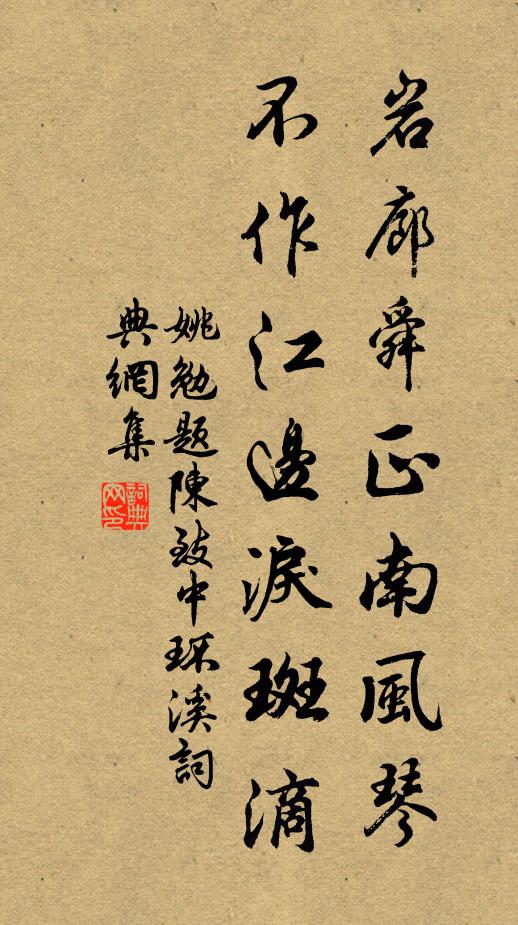 岩廊舜正南風琴
不作江邊淚斑滴
姚勉題陳致中琛溪詞
典網集
詞典
网印